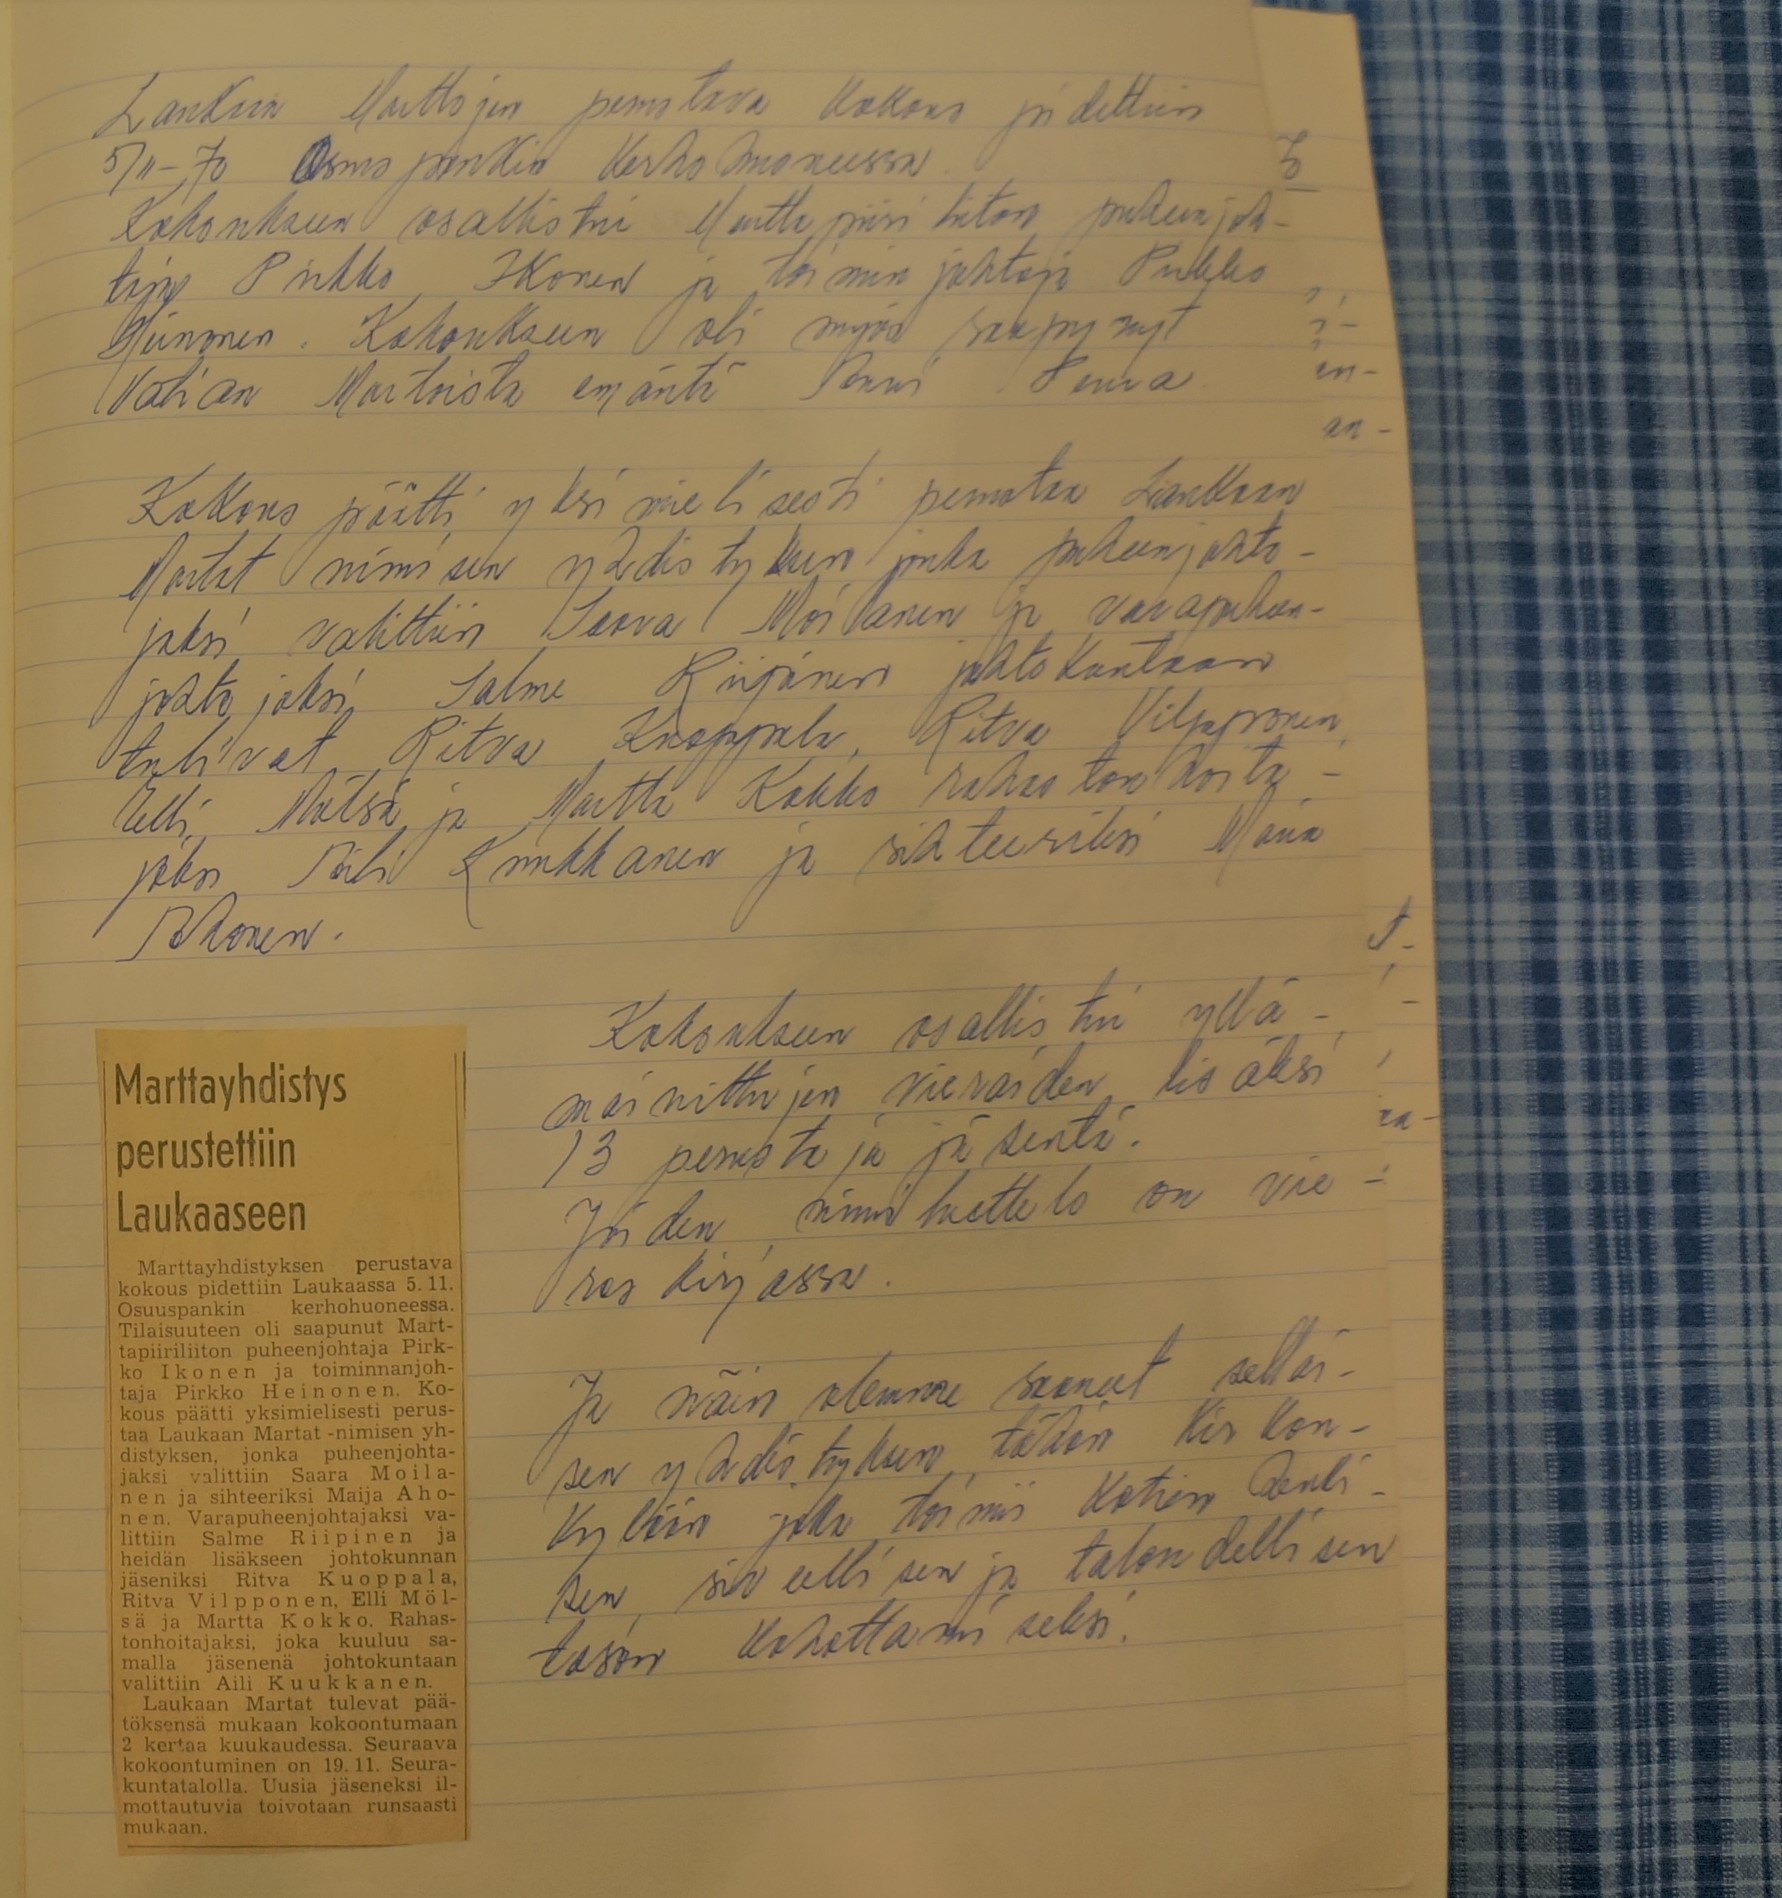 Laukaan Marttojen perustava kokous pidettiin
5/11-70 Osuuspankin kerhohuoneessa.
Kokoukseen osallistui Marttapiiriliiton puheenjoh-
taja Pirkko Ikonen ja toiminjohtaja Pirkko
Heinonen. Kokoukseen oli myös saapunyt
Martoista emäntä
Kokous päätti yksimielisesti perustaa Laukaan
Martat nimisen yhdistyksen jonka puheenjohta-
jaksi valittiin Saara Moilanen ja varapuheen-
johtajaksi Salme Riipinen johtokuntaan
tulivat Ritva Kuoppala, Ritva Vilpponen,
Elli Mölsä ja Martta Kokko rahastonhoita-
jaksi Aili Kuukkanen ja sihteeriksi Maija
Ahonen.
Kokoukseen osallistui yllä-
mainittujen vieraiden lisäksi
13 perustaja jäsentä.
Joiden nimiluettelo on vie-
ras kirjassa.
Ja näin olemme saaneet sellai-
sen yhdistyksen tähän kirkon-
kylään joka toimii kotien henki-
sen, siveellisen ja taloudellisen
tason kohottamiseksi.
Marttayhdistys
perustettiin
Laukaaseen
Marttayhdistyksen perustava
kokous pidettiin Laukaassa 5. 11.
Osuuspankin kerhohuoneessa.
Tilaisuuteen oli saapunut Mart-
tapiiriliiton puheenjohtaja Pirk-
ko Ikonen ja toiminnanjoh-
taja Pirkko Heinonen. Ko-
kous päätti yksimielisesti perus-
taa Laukaan Martat -nimisen yh-
distyksen, jonka puheenjohta-
jaksi valittiin Saara Moila-
nen ja sihteeriksi Maija Aho-
nen. Varapuheenjohtajaksi va-
littiin Salme Riipinen ja
heidän lisäkseen johtokunnan
jäseniksi Ritva Kuoppala,
Ritva Vilpponen, Elli Möl-
sä ja Martta Kokko. Rahas-
tonhoitajaksi, joka kuuluu sa-
malla jäsenenä johtokuntaan
valittiin Aili Kuukkanen.
Laukaan Martat tulevat pää-
töksensä mukaan kokoontumaan
2 kertaa kuukaudessa. Seuraava
kokoontuminen on 19. 11. Seura-
kuntatalolla. Uusia jäseneksi il-
mottautuvia toivotaan runsaasti
mukaan.